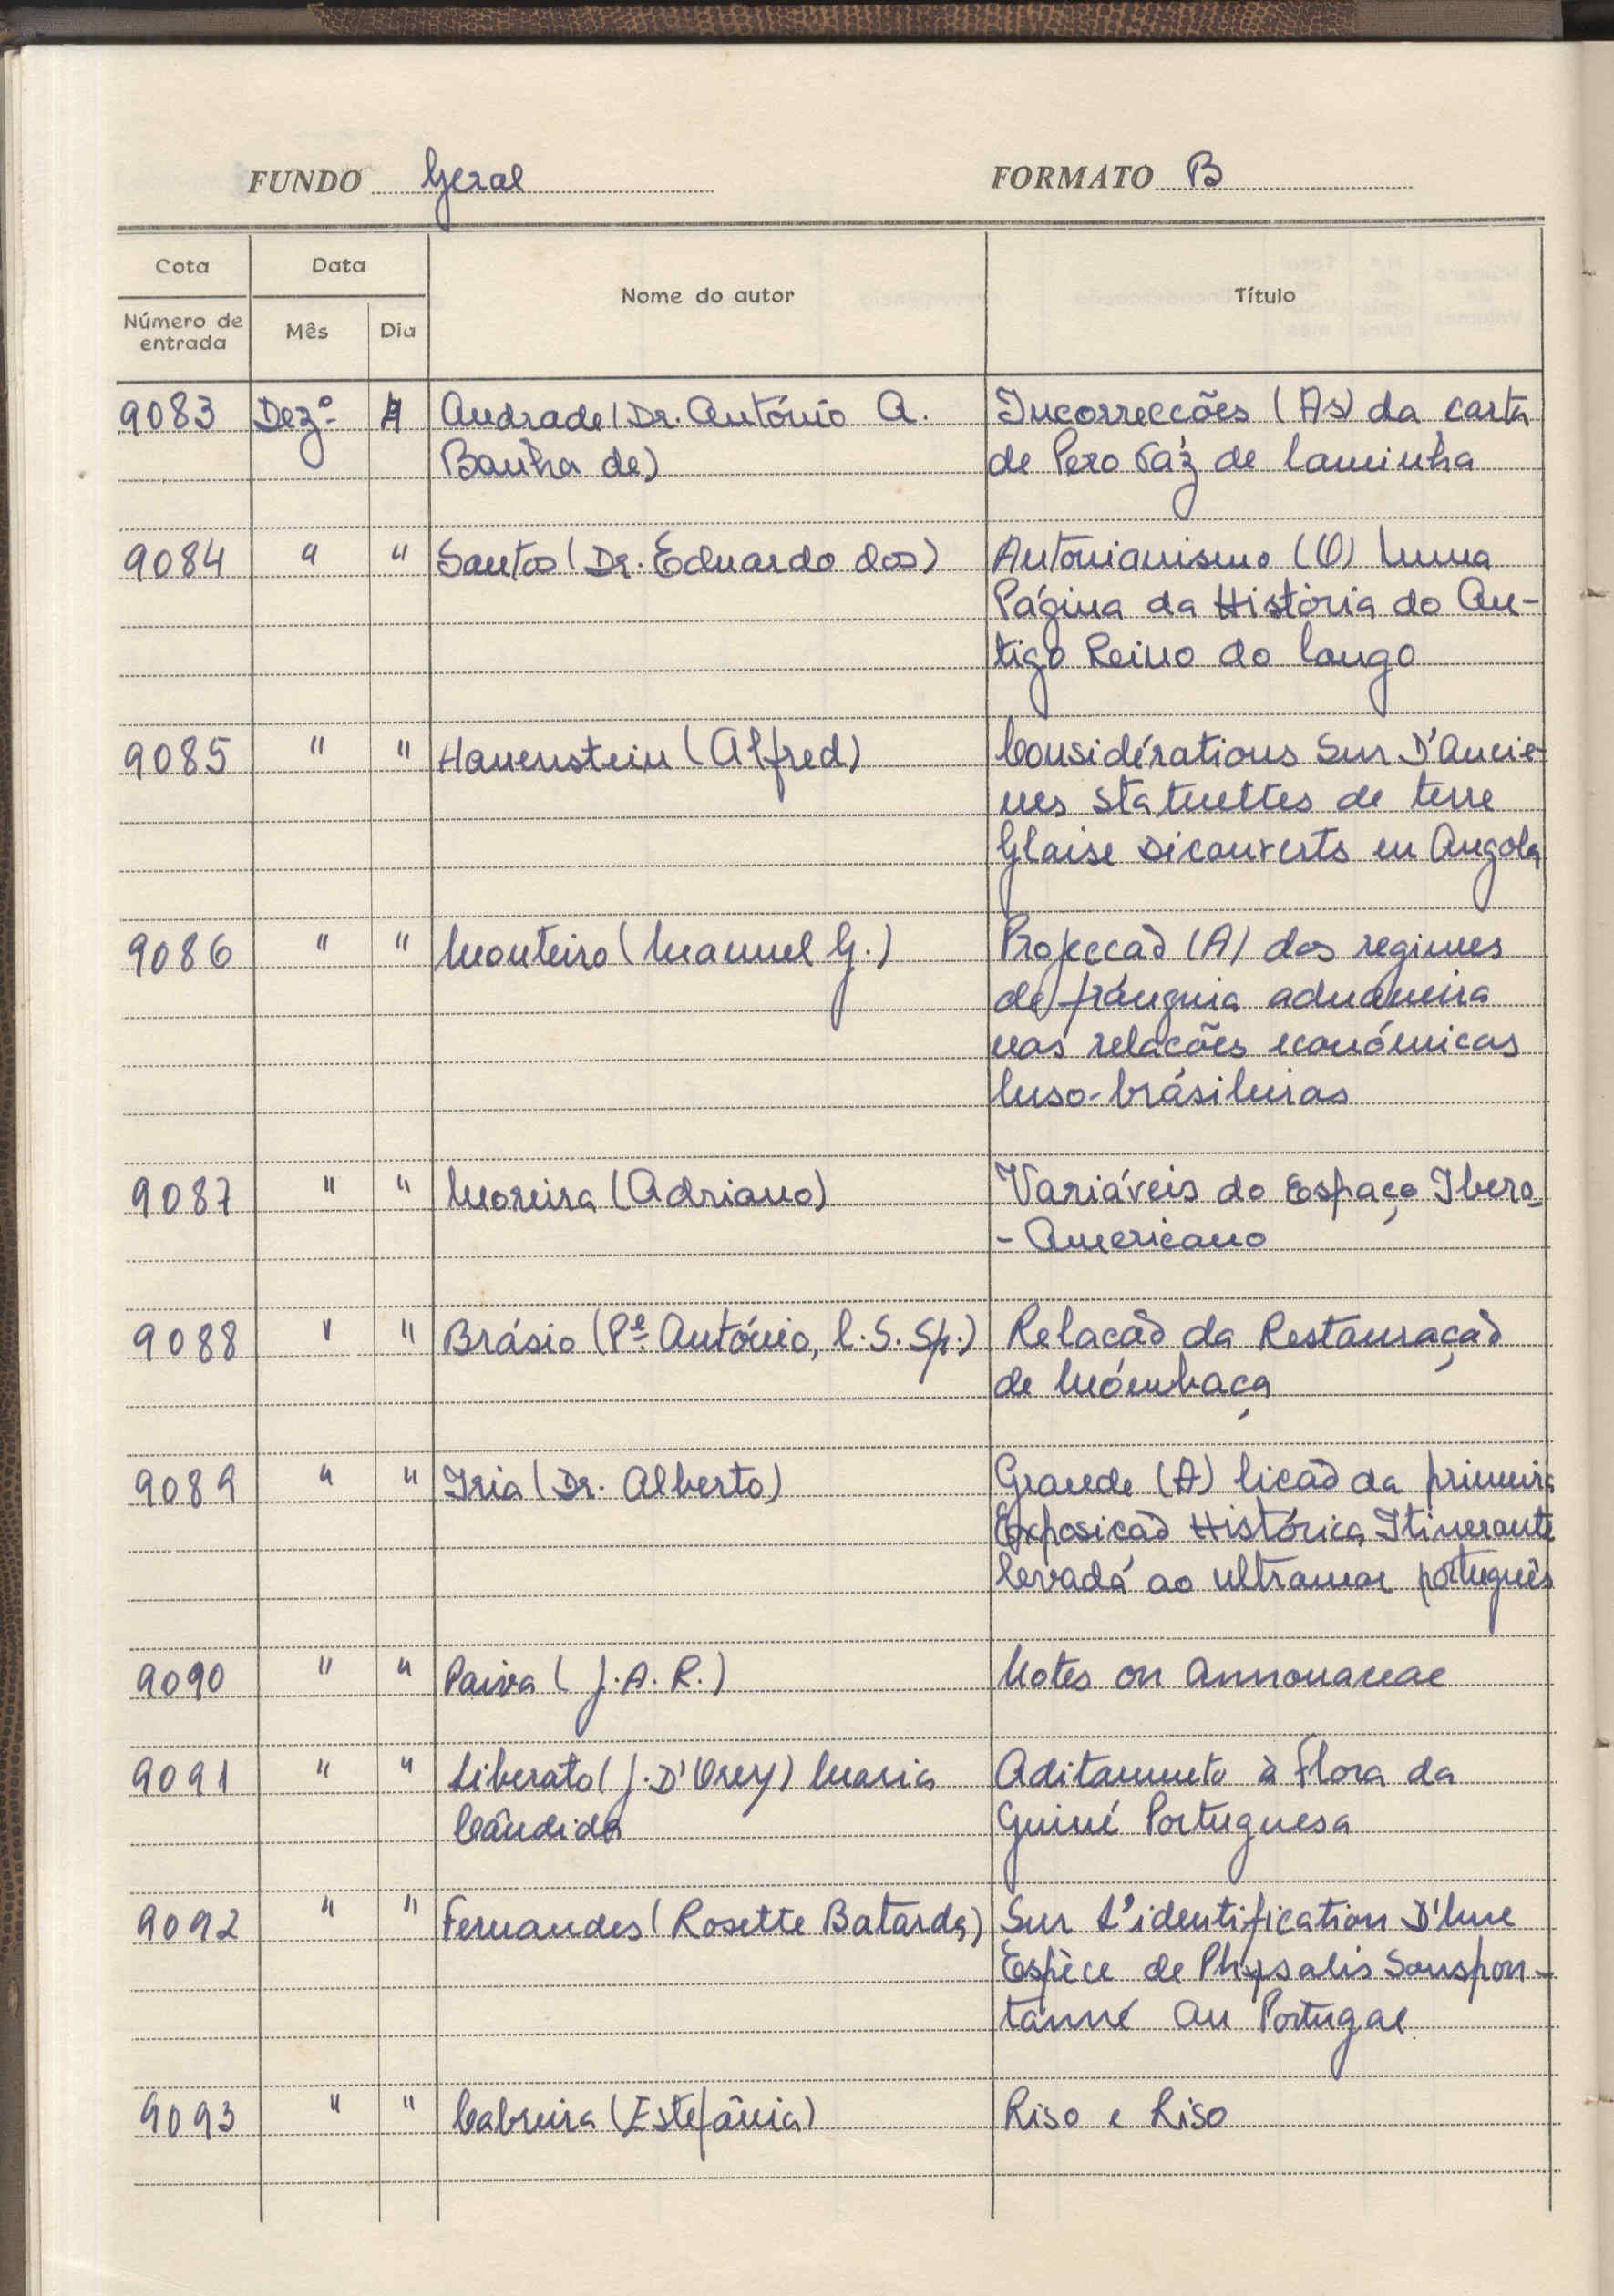 FUNDO Geral FORMATO B
Cota Data Nome do autor Título
Número de entrada Mês Dia
9083 Dez.º Andrade (Dr. António A. Incorrecções (As) da carta
Banha de) de Pero Váz de Caminha
9084 " " Santos (Dr. Eduardo dos) Antonianismo (O) Numa
Página da História do An-
tigo Reino do Congo
9085 " " Hauenstein (Alfred) Considérations Sur D'Ancie-
nes Statuettes de terre
Glaise Dicouverts en Angola
9086 " " Monteiro (Manuel G.) Projeccaõ (A) dos regimes
de franquia aduaneira
nas relacões económicas
luso-brásileiras
9087 " " Moreira (Adriano) Variáveis do Espaço Ibero-
- Americano
9088 " " Brásio (Pe. António, C.S.Sp.) Relacaõ da Restauraçaõ
de Mómbaça
9089 " " Iria (Dr. Alberto) Grande (A) licaõ da primeira
Exposicaõ Histórica Itinerante
levada ao ultramar português
9090 " " Paiva (J.A.R.) Notes on Annonaceae
9091 " " Liberato (J. D'Orey) Maria Aditamento à Flora da
Cândida Guiné Portuguesa
9092 " " Fernandes (Rosette Batarda) Sur L'identification D'Une
Espèce de Physalis Souspon-
tánné Au Portugal
9093 " " Cabreira (Estefânia) Riso e Riso